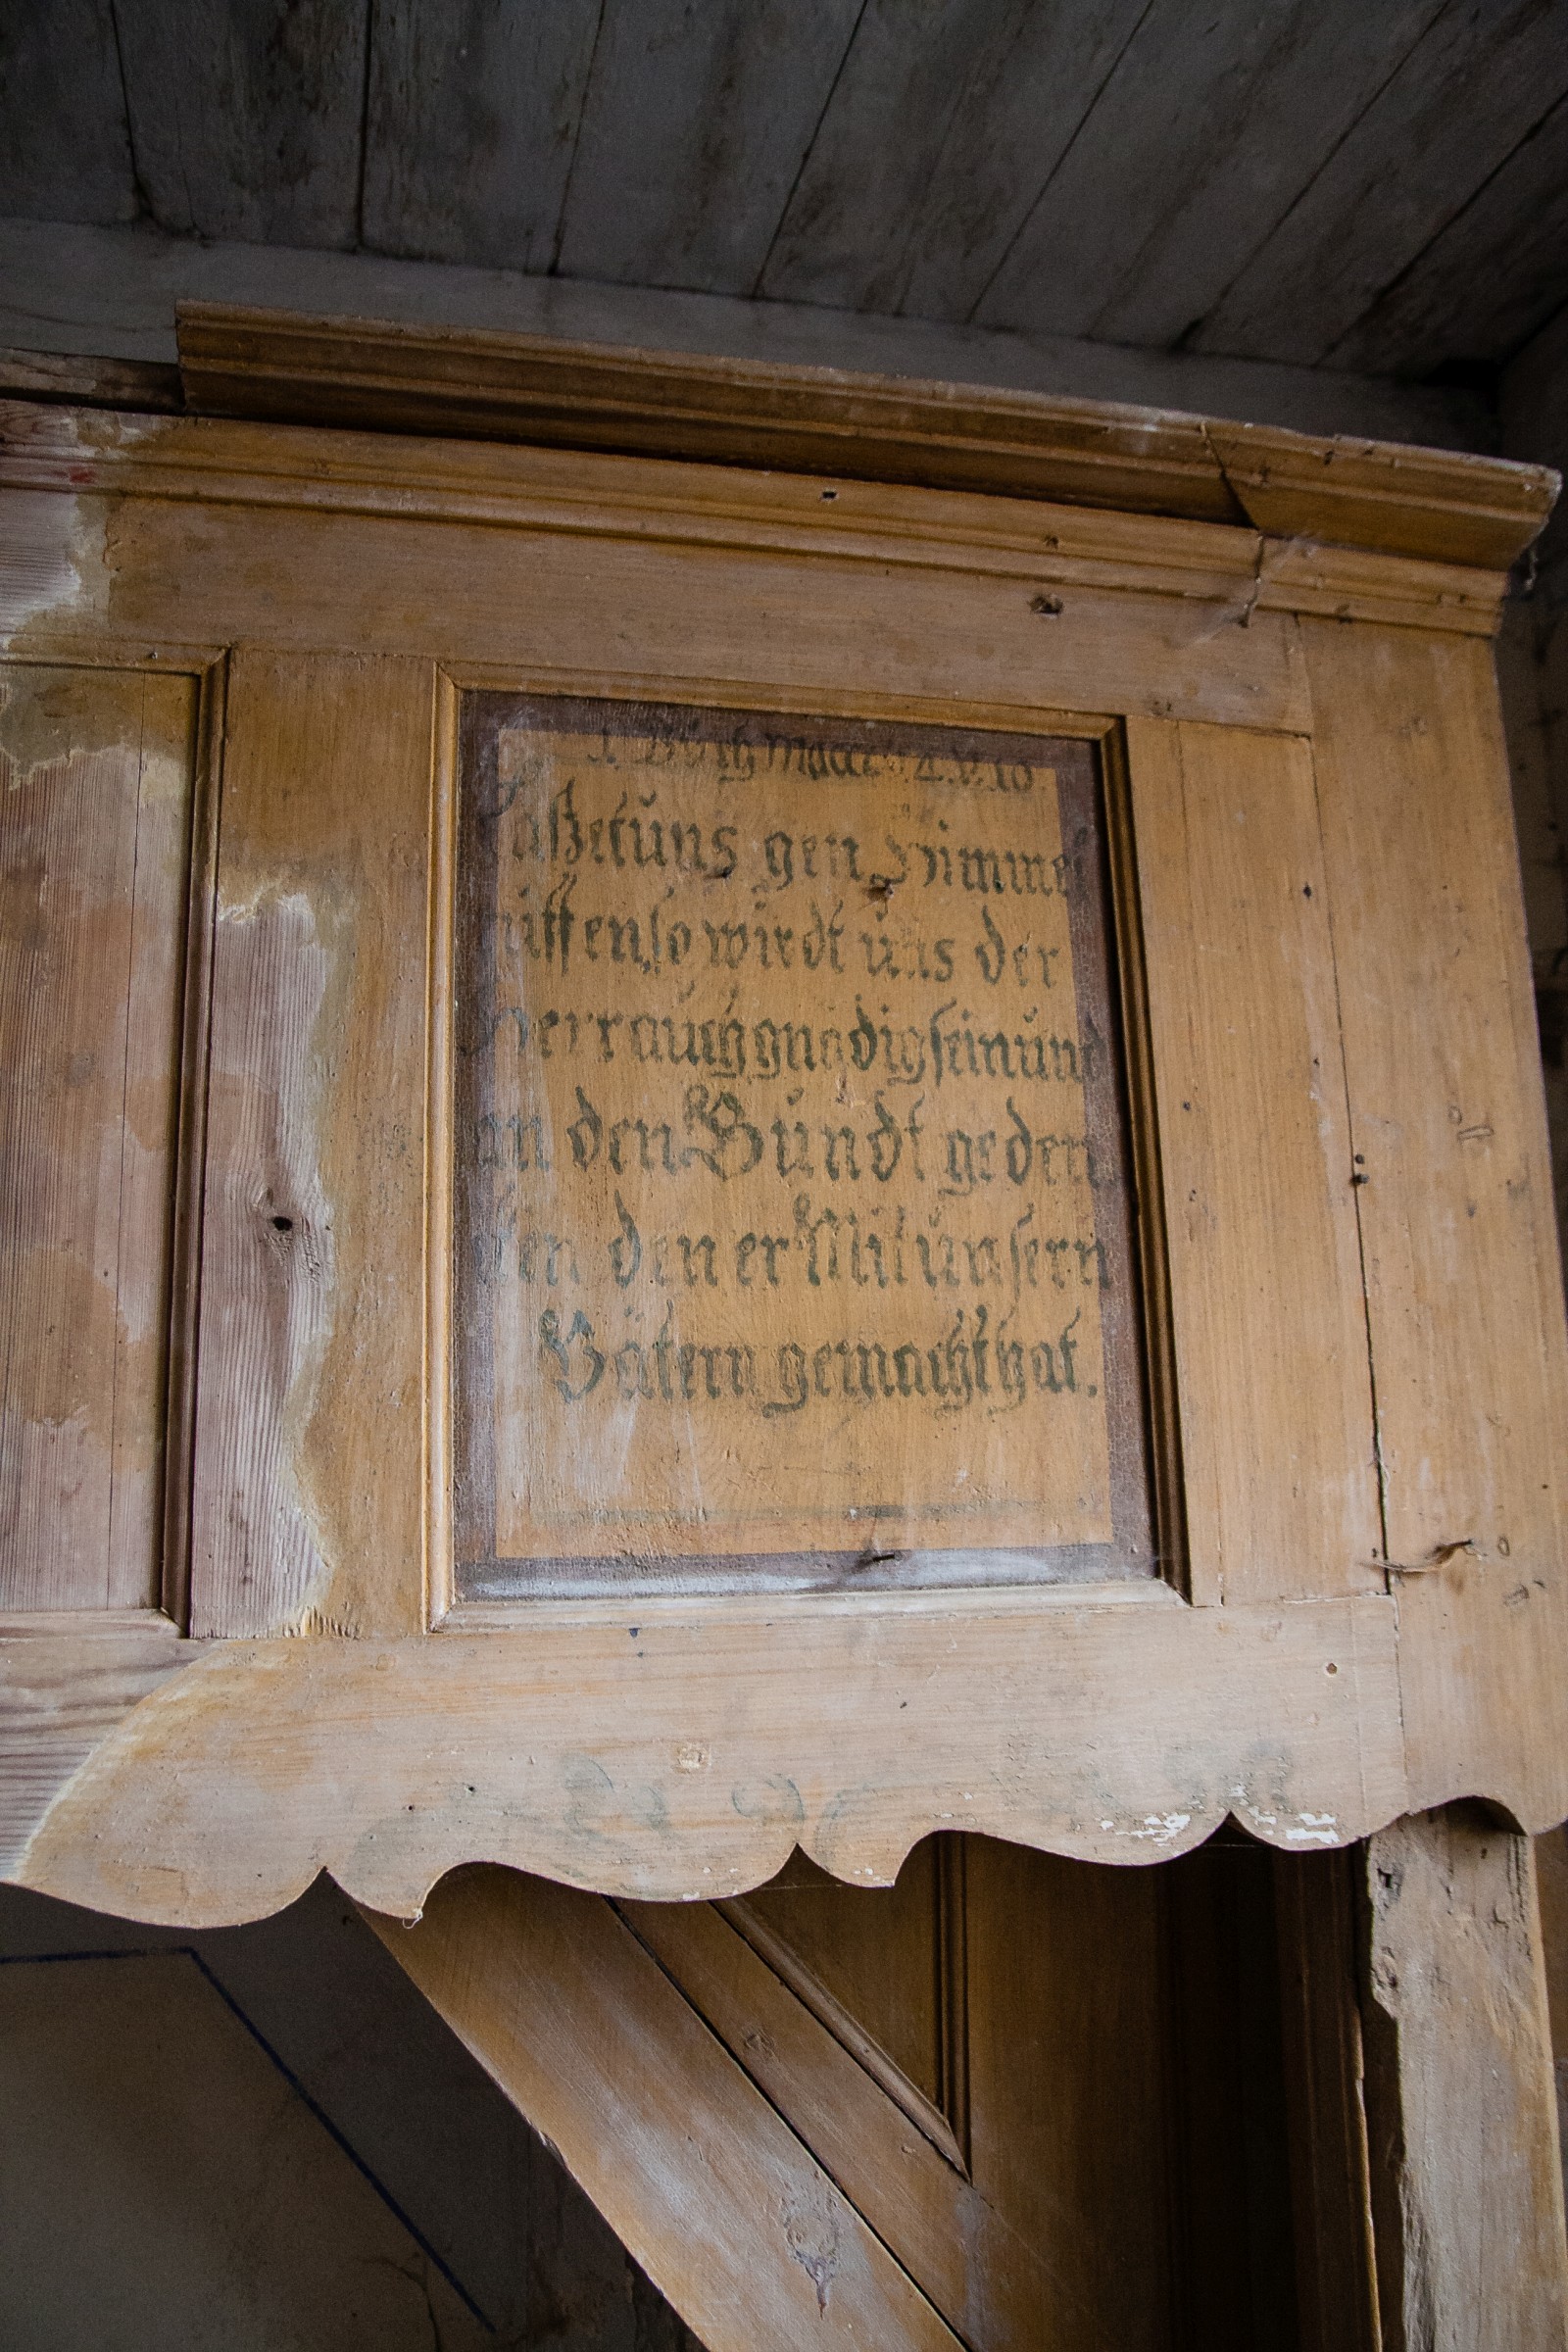 1. Buch Macca. 4. V. 10.
Laßet uns gen Himmel
ruffen, so wirdt uns der
Herr auch gnädig sein und
an den Bundt geden
ken den er Mit unsern
Vätern gemacht hat.